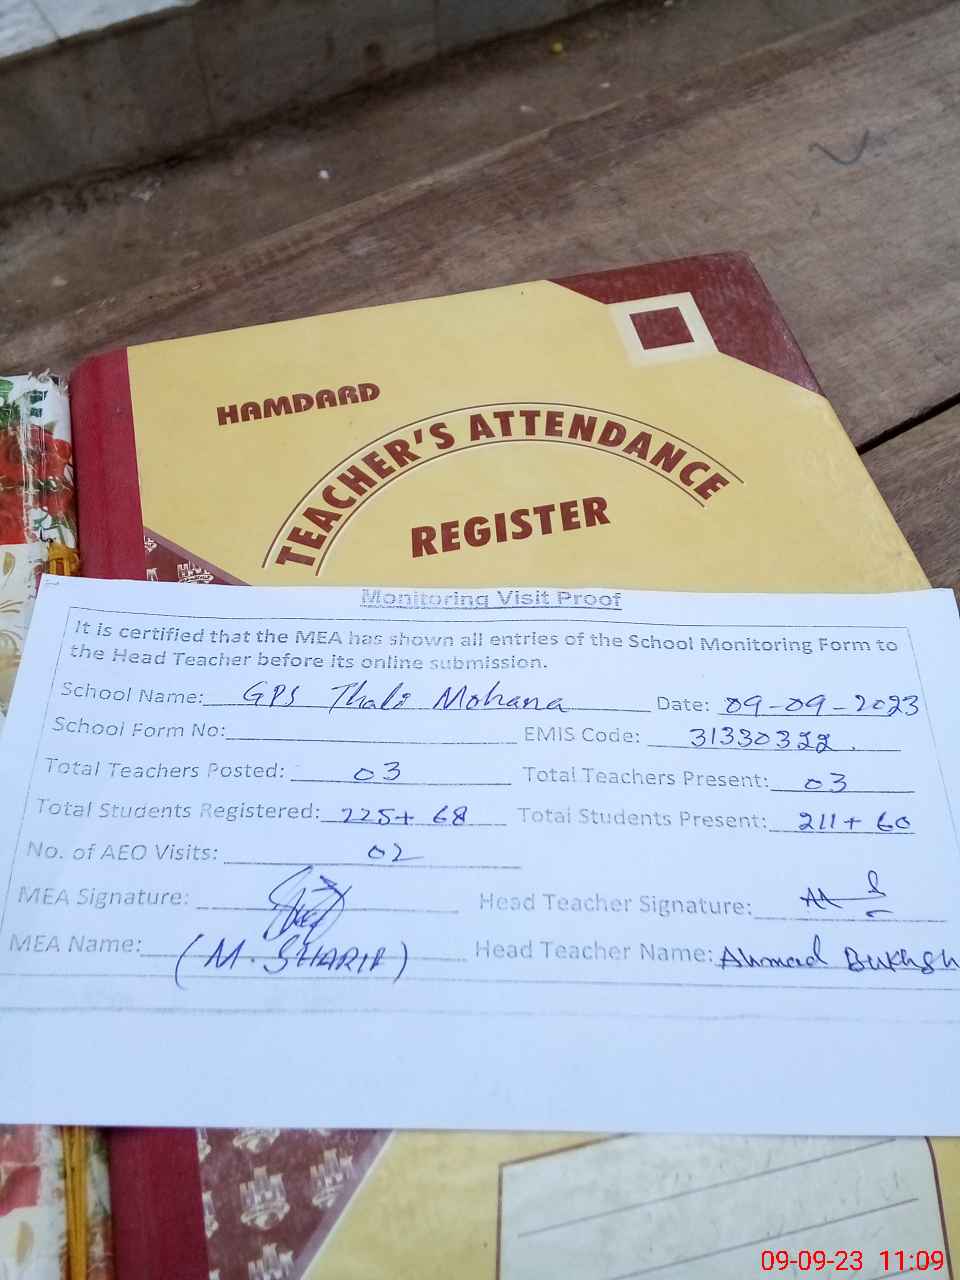 HAMDARD
TEACHER'S ATTENDANCE
REGISTER
Monitoring Visit Proof
It is certified that the MEA has shown all entries of the School Monitoring Form to
the Head Teacher before its online submission.
School Name: GPS Thali Mohana Date: 09-09-2023
School Form No: EMIS Code: 31330322.
Total Teachers Posted: 03 Total Teachers Present: 03
Total Students Registered: 225+ 68 Total Students Present: 211+ 60
No. of AEO Visits: 02
MEA Signature: Head Teacher Signature:
MEA Name: (M. SHARIF) Head Teacher Name: Ahmad Bukhsh
09-09-23 11:09